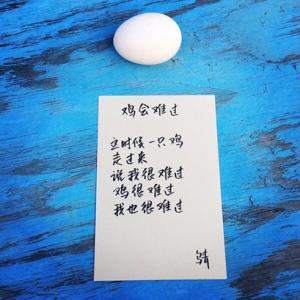 鸡会难过
这时候一只鸡
走过来
说我很难过
鸡很难过
我也很难过
乌青